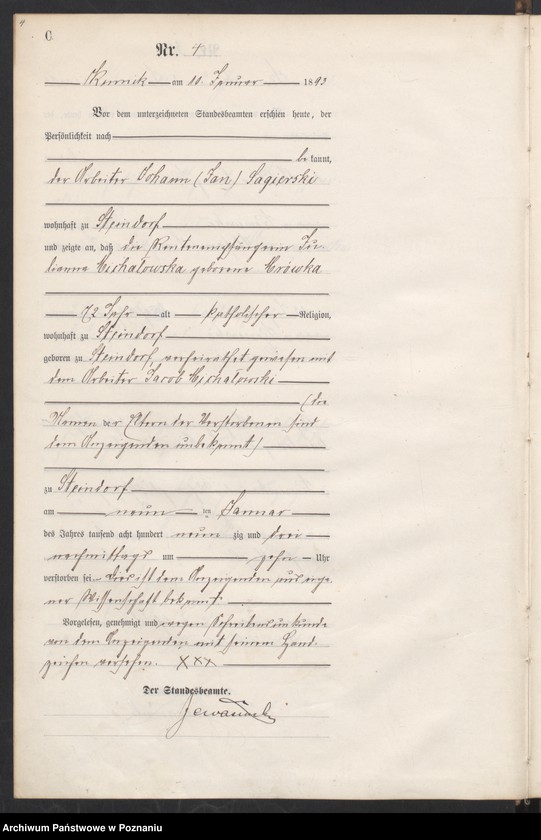 4
C.
Nr. 4
Kurnik am 10. Januar 1893
Vor dem unterzeichneten Standesbeamten erschien heute, der
Persönlichkeit nach
be kannt,
der Arbeiter Johann (Jan) Sagierski
wohnhaft zu Steindorf
und zeigte an, daß die Rentenempfängerin Ju-
lianna Michalowska geborene Mrówka
72 Jahr alt katholischer Religion,
wohnhaft zu Steindorf
geboren zu Steindorf, verheirathet gewesen mit
dem Arbeiter Jacob Michalowski
(die
Namen der Eltern der Verstorbenen sind
dem Anzeigenden unbekannt)
zu Steindorf
am neun ten Januar
des Jahres tausend acht hundert neun zig und drei
nachmittags um zehn Uhr
verstorben sei. Dies ist dem Anzeigenden aus eige-
ner Wissenschaft bekannt.
Vorgelesen, genehmigt und wegen Schreibensunkunde
von dem Anzeigenden mit seinem Hand-
zeichen versehen. XXX
Der Standesbeamte.
Archiwum Państwowe w Poznaniu